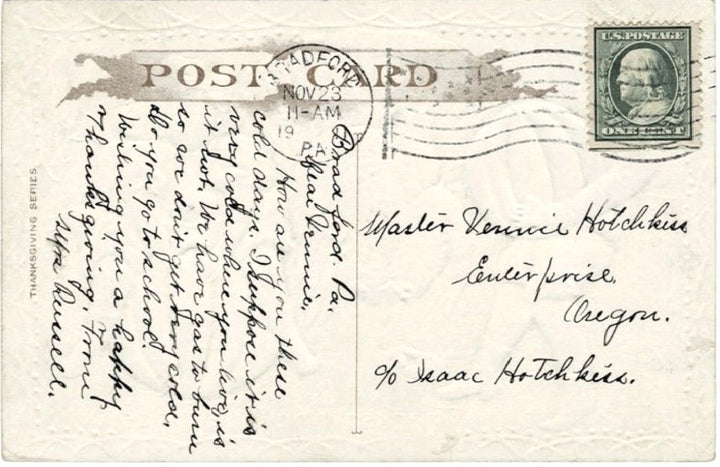 POST CARD
BRADFORD
NOV 23
11-AM
19
PA.
U.S. POSTAGE
ONE CENT
THANKSGIVING SERIES
Bradford. Pa.
Dear Vennie,
How are you these
cold days. I suppose it is
very cold where you live, is
it not. We have gas to burn
so we don't get very cold.
Do you go to school.
Wishing you a happy
Thanksgiving. From
Mrs Russell.
Master Vennie Hotchkiss
Enterprise.
Oregon.
c/o Isaac Hotchkiss.